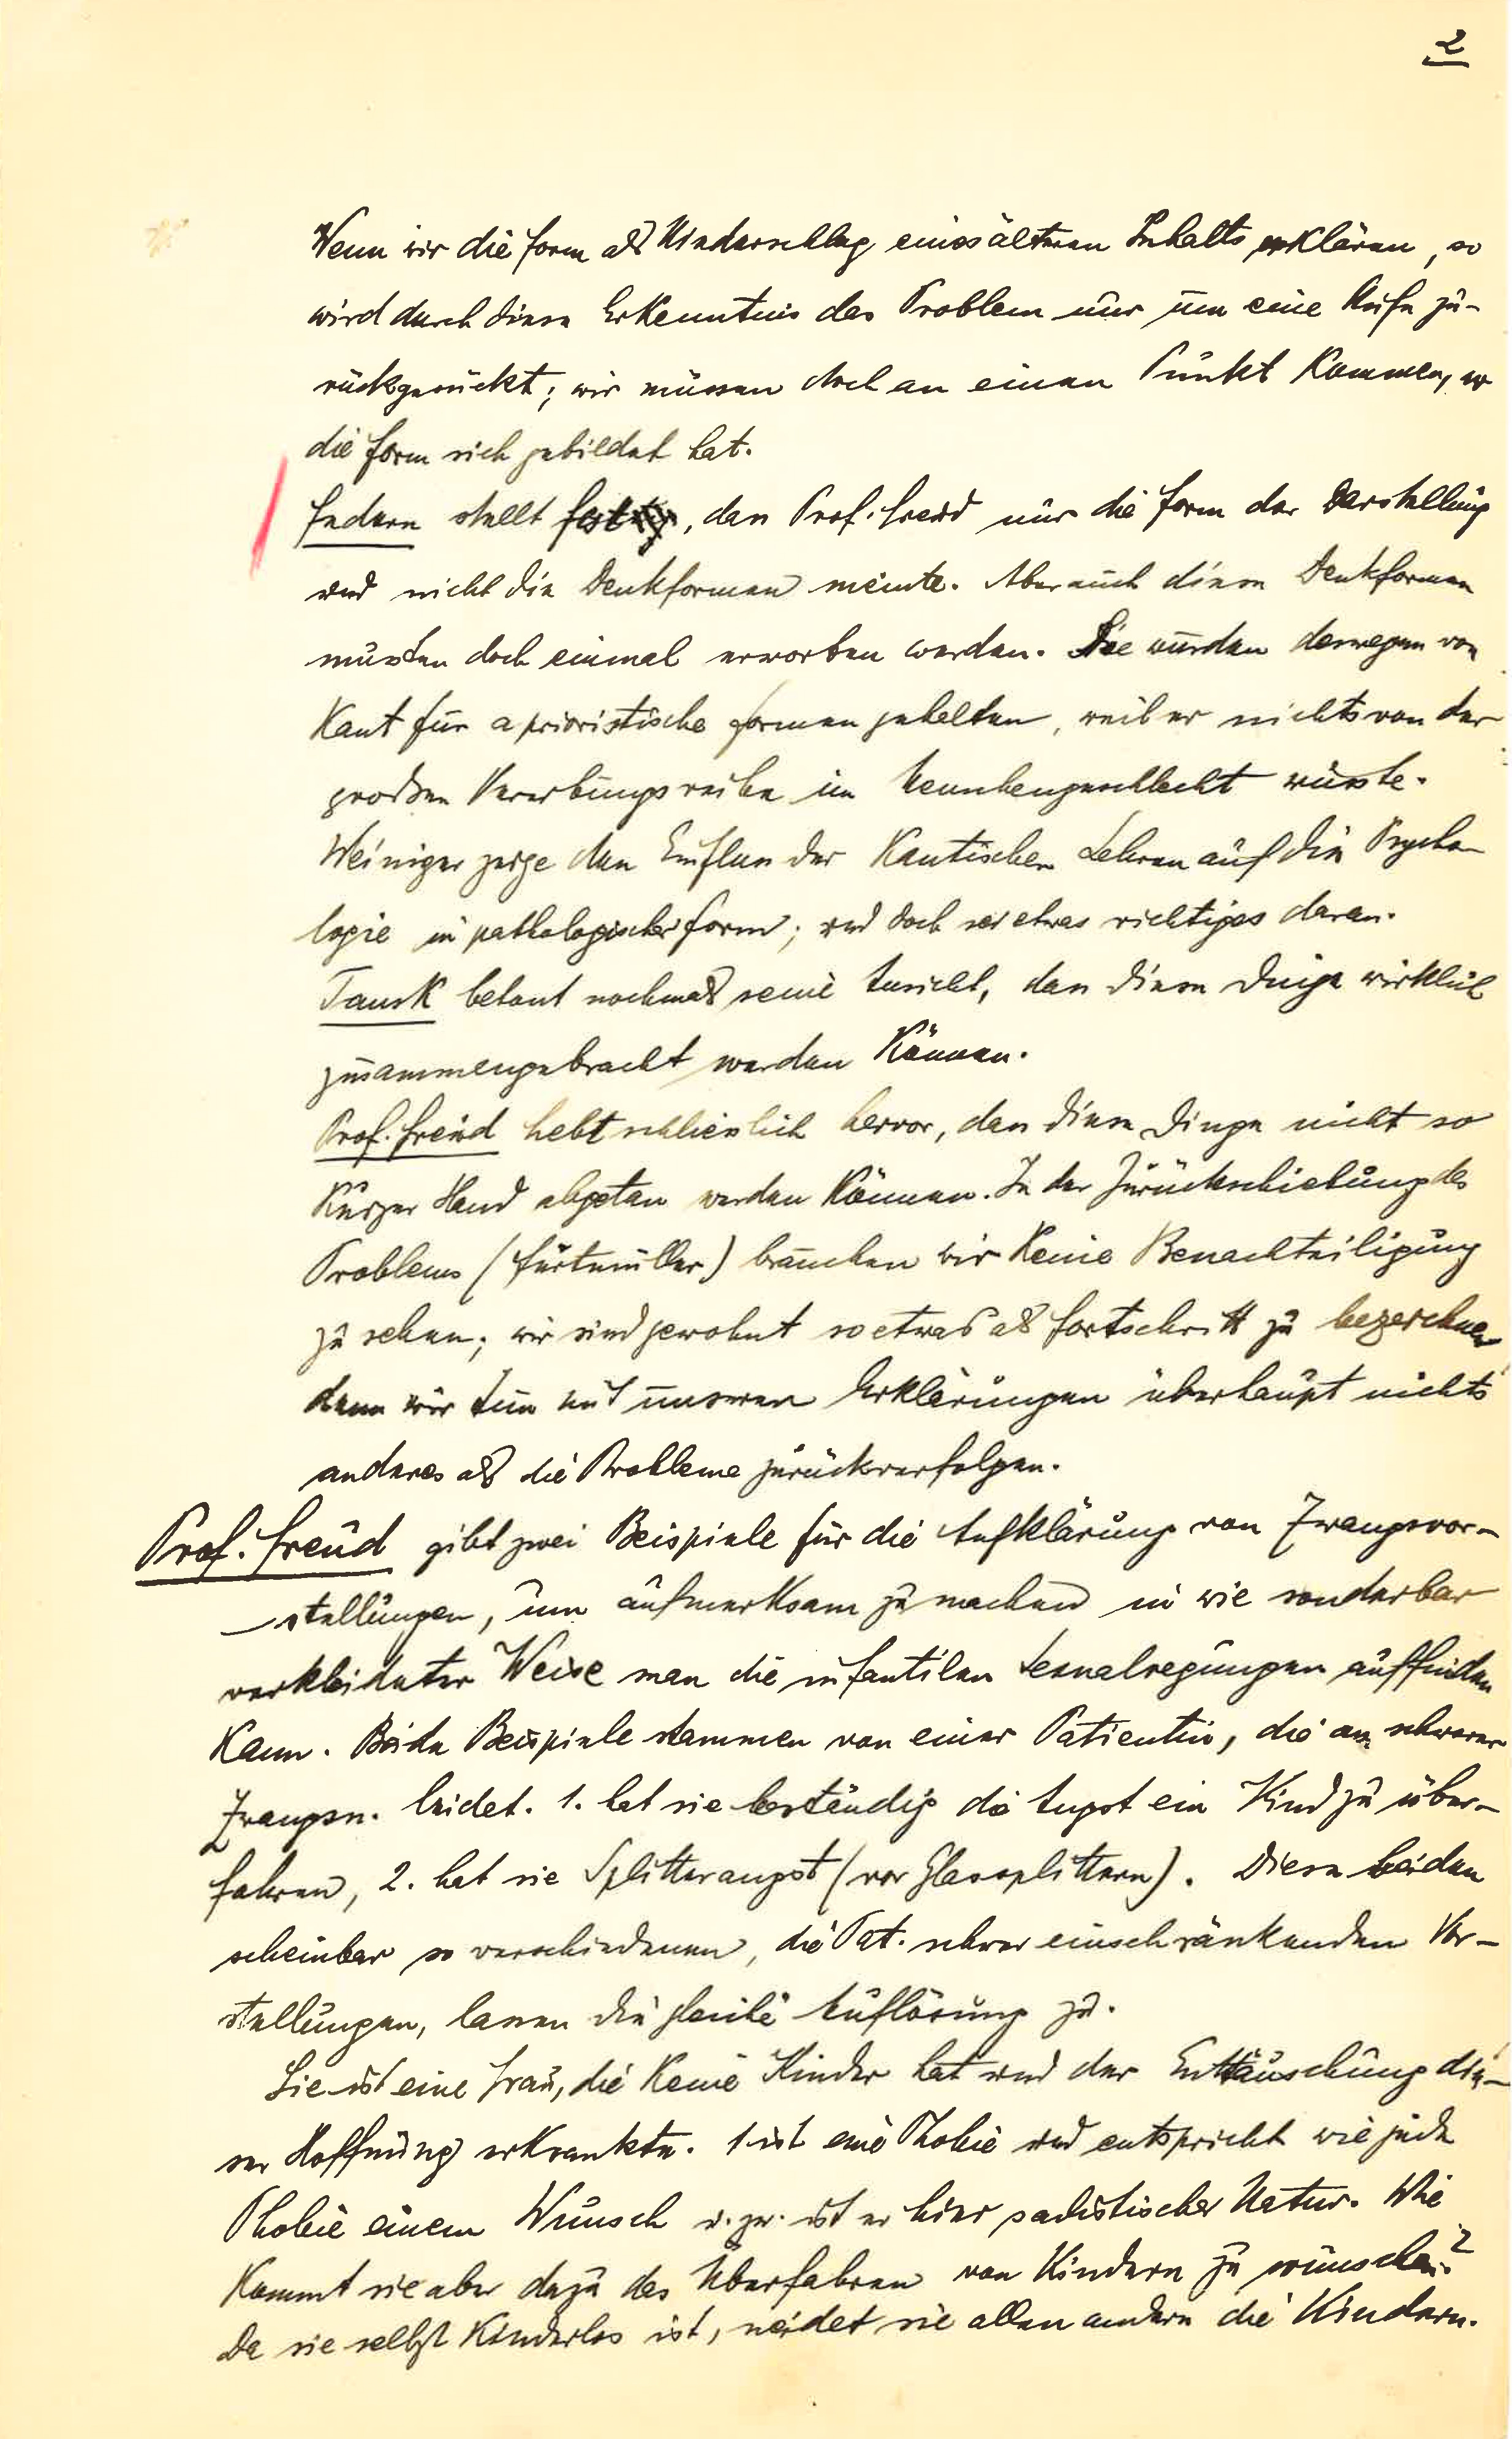 2
Wenn wir die Form als Niederschlag eines älteren Inhalts erklären, so
wird durch diese Erkenntnis das Problem nur um eine Stufe zu-
rückgerückt; wir müssen doch an einen Punkt kommen, wo
die Form sich gebildet hat.
Federn stellt fest, dass Prof. Freud nur die Form der Darstellung
und nicht die Denkformen meinte. Aber auch diese Denkformen
mussten doch einmal erworben werden. Sie wurden deswegen von
Kant für aprioristische Formen gehalten, weil er nichts von der
grossen Vererbungsreihe im Menschengeschlecht wusste.
Weininger zeige den Einfluss der Kantischen Lehren auf die Psycho-
logie in pathologischer Form; und doch sei etwas richtiges daran.
Tausk betont nochmals seine Ansicht, dass diese Dinge wirklich
zusammengebracht werden können.
Prof. Freud hebt schliesslich hervor, dass diese Dinge nicht so
kurzer Hand abgetan werden können. In der Zurückschiebung des
Problems (Furtmüller) brauchen wir keine Benachteiligung
zu sehen; wir sind gewohnt so etwas als Fortschritt zu bezeichnen
denn wir tun mit unseren Erklärungen überhaupt nichts
anderes als die Probleme zurückverfolgen.
Prof. Freud gibt zwei Beispiele für die Aufklärung von Zwangsvor-
stellungen, um aufmerksam zu machen in wie sonderbar
verkleideter Weise man die infantilen Sexualregungen auffinden
kann. Beide Beispiele stammen von einer Patientin, die an schwerer
Zwangsn. leidet. 1. hat sie beständig die Angst ein Kind zu über-
fahren, 2. hat sie Splitterangst (vor Glassplittern). Diese beiden
scheinbar so verschiedenen, die Pat. schwer einschränkenden Vor-
stellungen, lassen die gleiche Auflösung zu.
Sie ist eine Frau, die keine Kinder hat und der Enttäuschung die-
ser Hoffnung erkrankte. 1. ist eine Phobie und entspricht wie jede
Phobie einem Wunsch u. zw. ist er hier sadistischer Natur. Wie
kommt sie aber dazu das Überfahren von Kindern zu wünschen?
Da sie selbst kinderlos ist, neidet sie allen andern die Kindern.